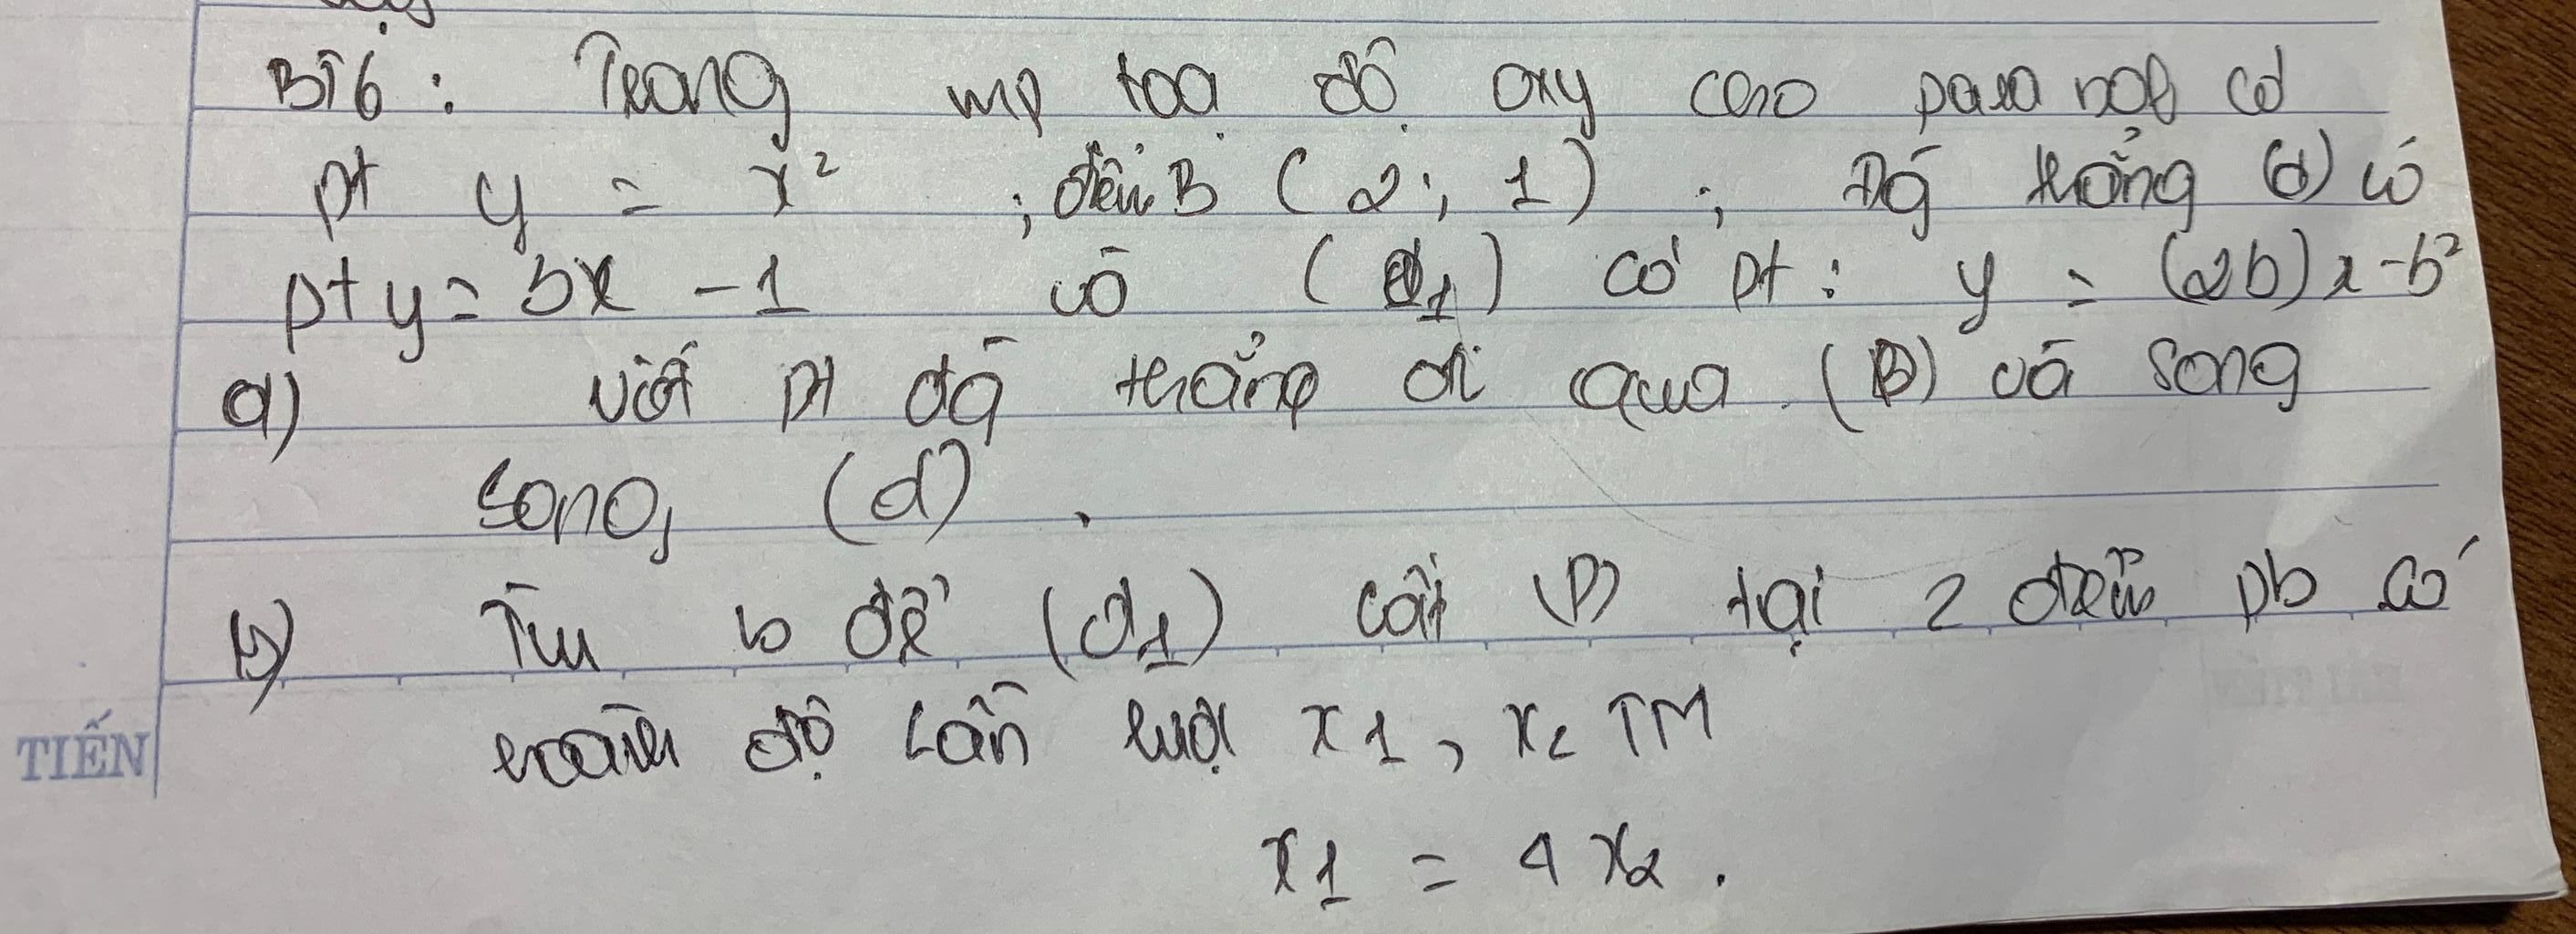 BT6 : Trong mp toạ độ oxy cho parabol có
pt y = x² ; điểm B (2; 1) ; Đg thẳng (d) có
pt y = 3x - 1 và (d1) có pt : y = (2b)x - b²
a) Viết pt đg thẳng đi qua (B) và song
song (d) .
b) Tìm b để (d1) cắt (P) tại 2 điểm pb có
hoành độ lần lượt x1, x2 TM
TIẾN
x1 = 4 x2 .